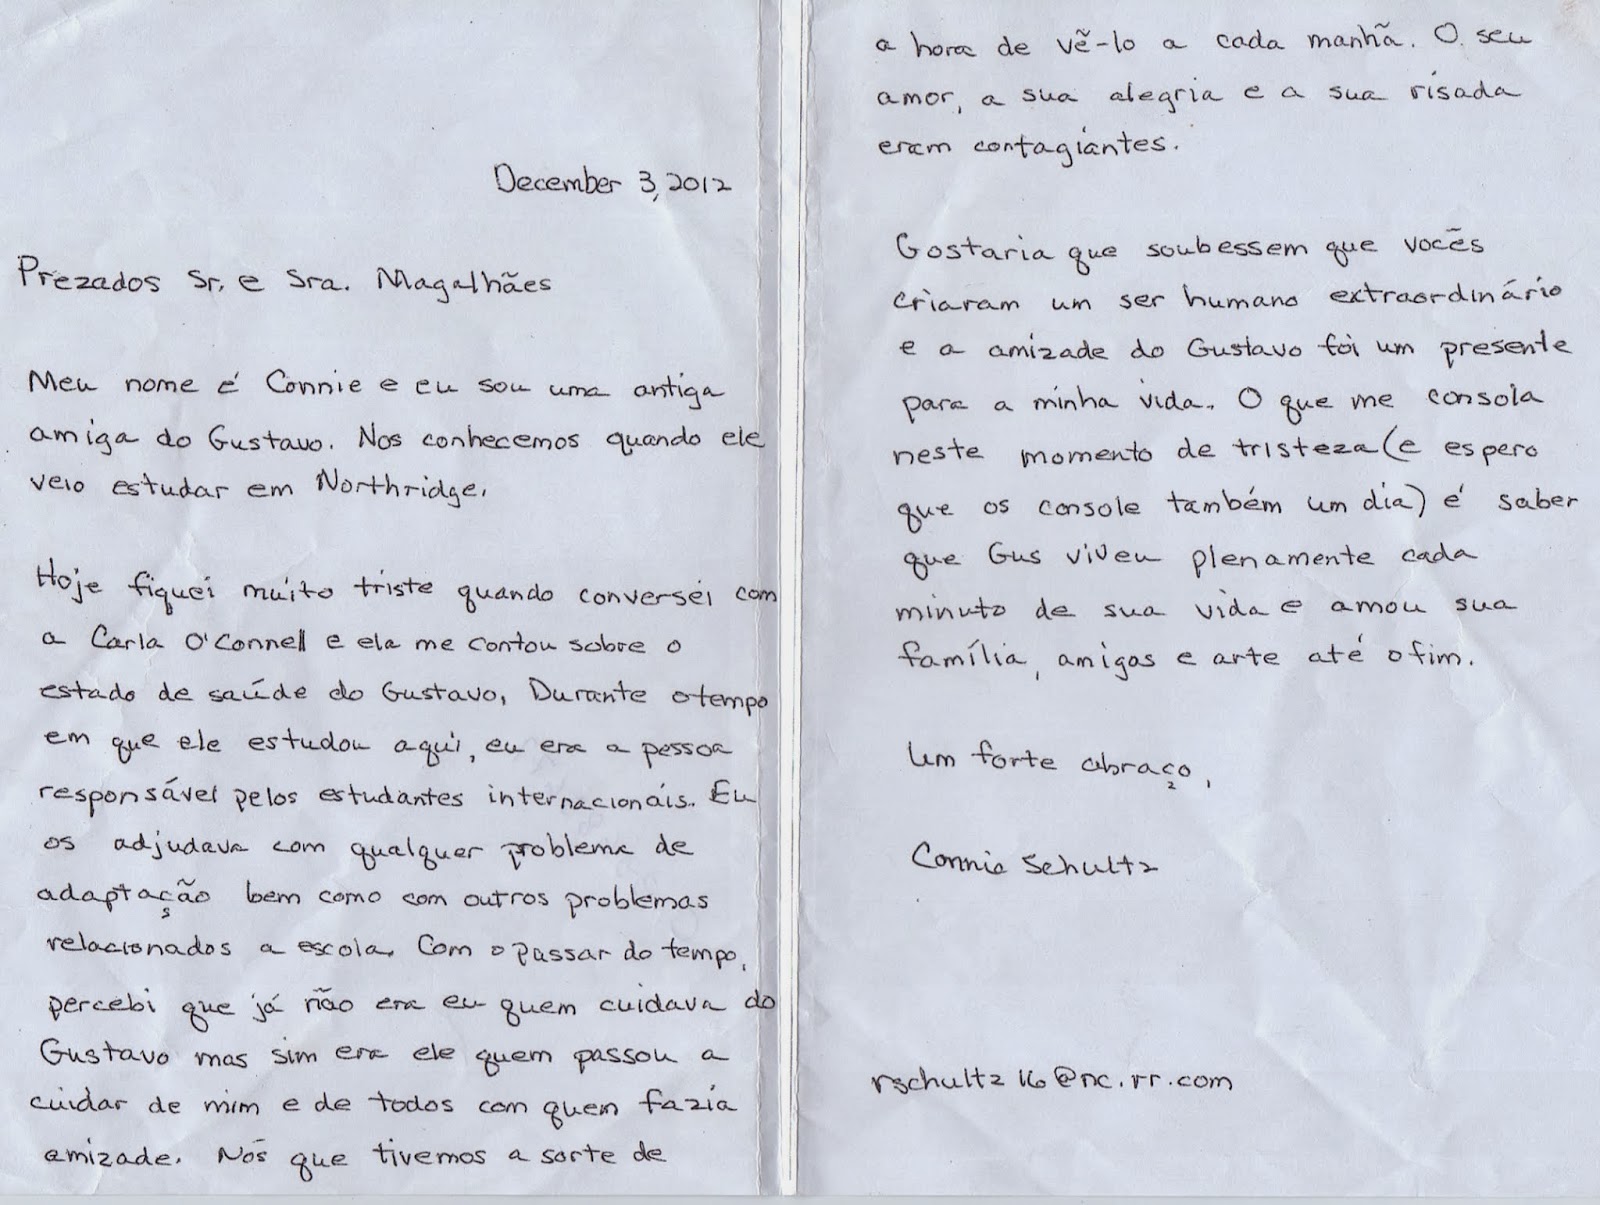 December 3, 2012
Prezados Sr. e Sra. Magalhães
Meu nome é Connie e eu sou uma antiga
amiga do Gustavo. Nos conhecemos quando ele
veio estudar em Northridge.
Hoje fiquei muito triste quando conversei com
a Carla O'Connell e ela me contou sobre o
estado de saúde do Gustavo. Durante o tempo
em que ele estudou aqui, eu era a pessoa
responsável pelos estudantes internacionais. Eu
os adjudava com qualquer problema de
adaptação bem como com outros problemas
relacionados a escola. Com o passar do tempo,
percebi que já não era eu quem cuidava do
Gustavo mas sim era ele quem passou a
cuidar de mim e de todos com quem fazia
amizade. Nós que tivemos a sorte de
a hora de vê-lo a cada manhã. O seu
amor, a sua alegria e a sua risada
eram contagiantes.
Gostaria que soubessem que vocês
criaram um ser humano extraordinário
e a amizade do Gustavo foi um presente
para a minha vida. O que me consola
neste momento de tristeza (e espero
que os console também um dia) é saber
que Gus viveu plenamente cada
minuto de sua vida e amou sua
família, amigos e arte até o fim.
Um forte abraço,
Connie Schultz
rschultz16@nc.rr.com